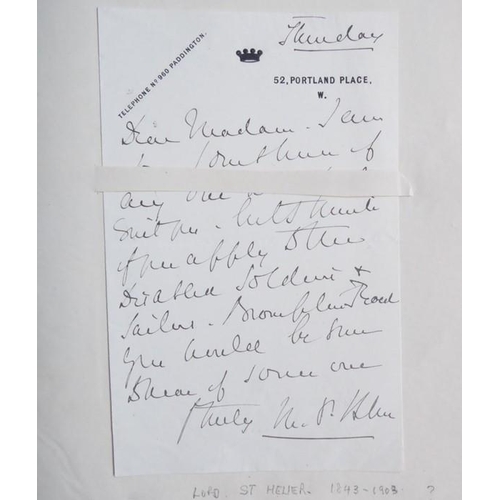 Thursday
TELEPHONE Nº 960 PADDINGTON.
52, PORTLAND PLACE,
W.
Dear Madam. I am
of
any one
Suit you - but I think
if you apply to the
Disabled Soldiers &
Sailors - Brompton Road
you would be sure
to hear of some one
truly M. St. Helier
LORD ST HELIER. 1843-1903 ?